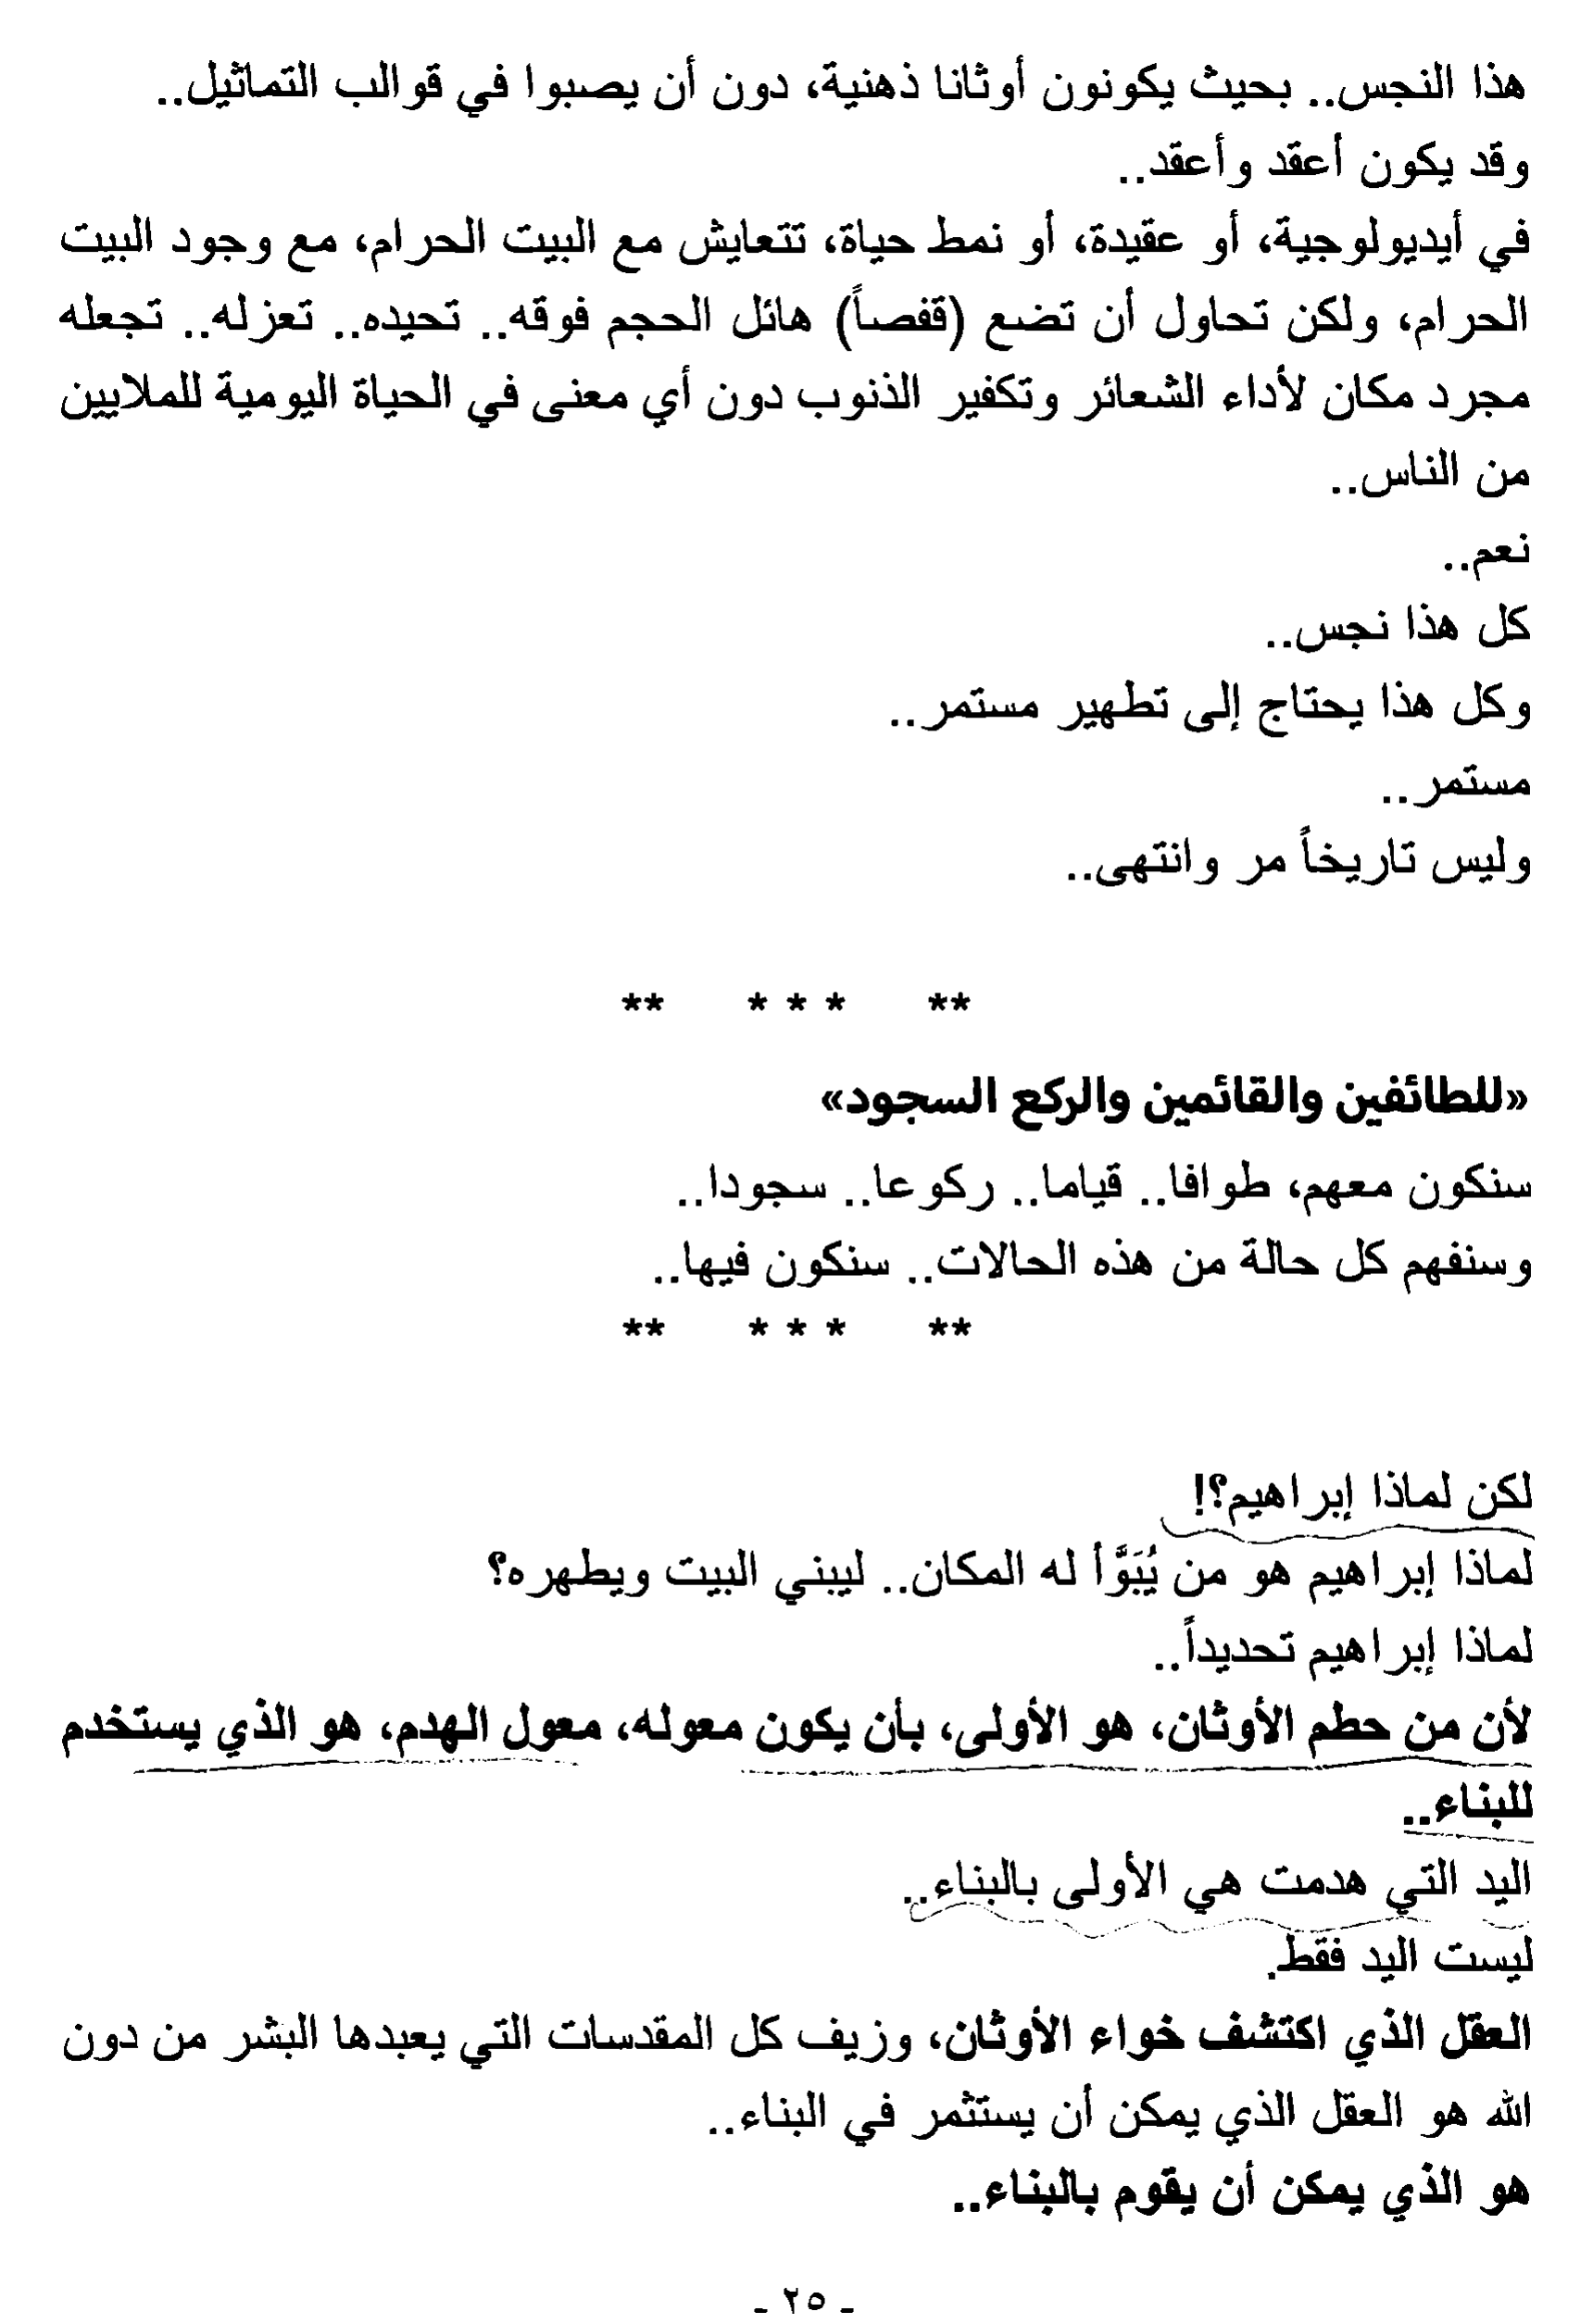 هذا النجس.. بحيث يكونون أوثانا ذهنية، دون أن يصبوا في قوالب التماثيل..
وقد يكون أعقد وأعقد..
في أيديولوجية، أو عقيدة، أو نمط حياة، تتعايش مع البيت الحرام، مع وجود البيت
الحرام، ولكن تحاول أن تضع (قفصاً) هائل الحجم فوقه.. تحيده.. تعزله.. تجعله
مجرد مكان لأداء الشعائر وتكفير الذنوب دون أي معنى في الحياة اليومية للملايين
من الناس..
نعم..
كل هذا نجس..
وكل هذا يحتاج إلى تطهير مستمر..
مستمر..
وليس تاريخاً مر وانتهى..
** * * * **
«للطائفين والقائمين والركع السجود»
سنكون معهم، طوافا.. قياما.. ركوعا.. سجودا..
وسنفهم كل حالة من هذه الحالات.. سنكون فيها..
** * * * **
لكن لماذا إبراهيم؟!
لماذا إبراهيم هو من يُبَوَّأ له المكان.. ليبني البيت ويطهره؟
لماذا إبراهيم تحديداً..
لأن من حطم الأوثان، هو الأولى، بأن يكون معوله، معول الهدم، هو الذي يستخدم
للبناء..
اليد التي هدمت هي الأولى بالبناء..
ليست اليد فقط.
العقل الذي اكتشف خواء الأوثان، وزيف كل المقدسات التي يعبدها البشر من دون
الله هو العقل الذي يمكن أن يستثمر في البناء..
هو الذي يمكن أن يقوم بالبناء..
- ٢٥ -